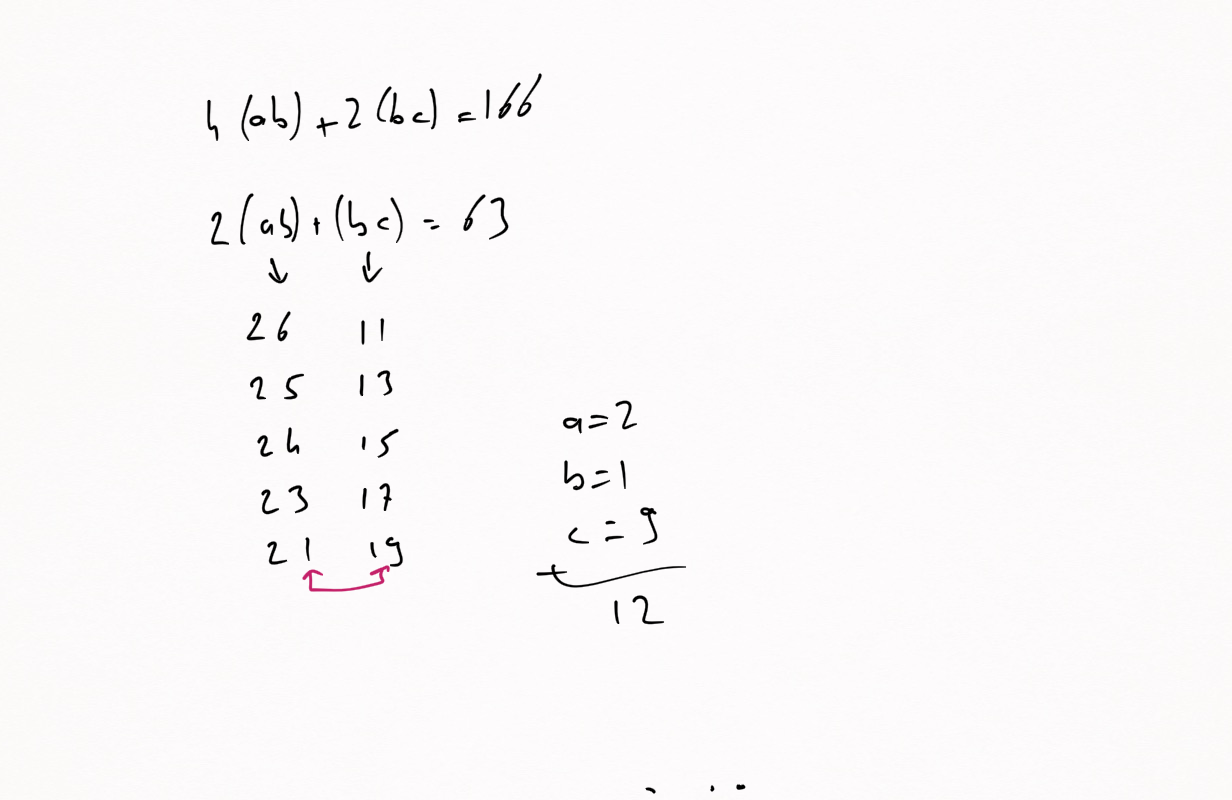 4 (ab) + 2 (bc) = 166
2 (ab) + (bc) = 63
↓ ↓
26 11
25 13
24 15
23 17
21 19
a = 2
b = 1
c = 9
+
12